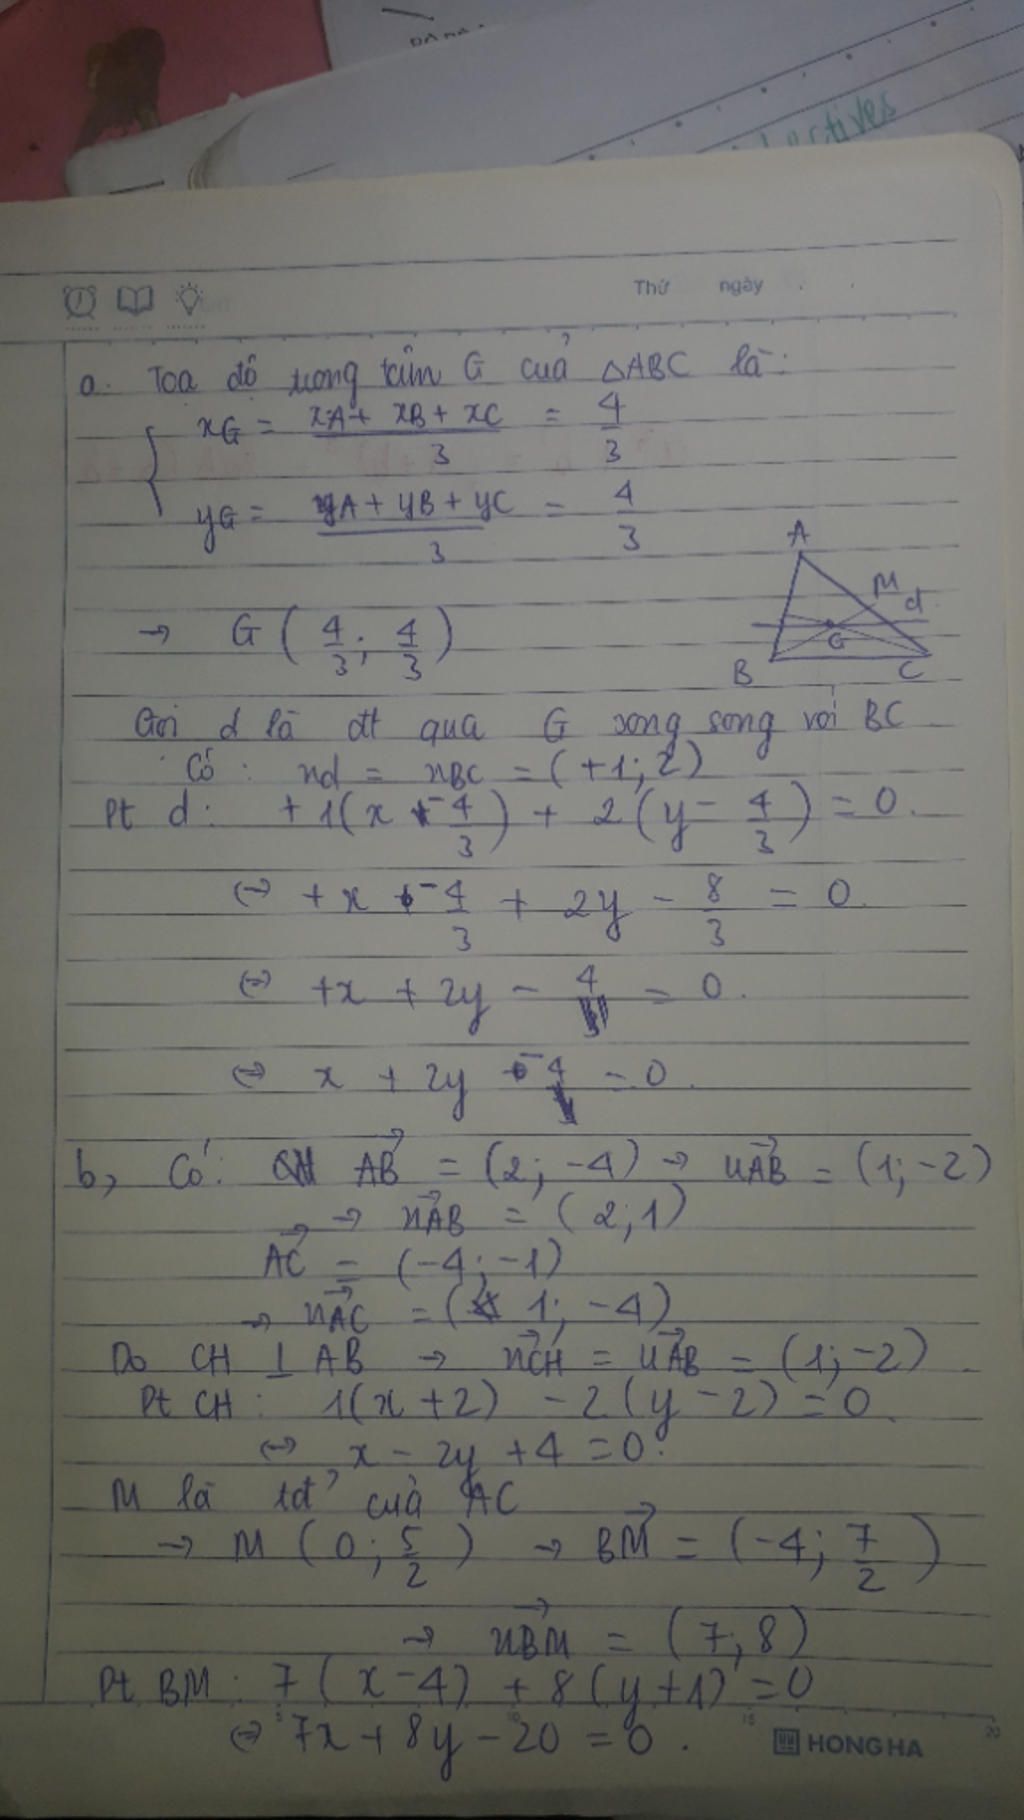 ctives
Thứ ngày
a. Toạ độ trọng tâm G của △ABC là:
xG = (xA + xB + xC)/3 = 4/3
yG = (yA + yB + yC)/3 = 4/3
A
M
d
→ G ( 4/3 ; 4/3 )
G
B C
Gọi d là đt qua G song song với BC
Có: nd = nBC = (+1; 2)
Pt d: +1(x - 4/3) + 2(y - 4/3) = 0.
(=) +x - 4/3 + 2y - 8/3 = 0.
(=) +x + 2y - 4 = 0.
(=) x + 2y - 4 = 0.
b, Có: AB→ = (2; -4) → uAB→ = (1; -2)
→ nAB→ = (2; 1)
AC→ = (-4; -1)
→ nAC→ = (1; -4)
Do CH ⊥ AB → nCH→ = uAB→ = (1; -2).
Pt CH: 1(x + 2) - 2(y - 2) = 0.
(=) x - 2y + 4 = 0.
M là tđ' của AC
→ M (0; 5/2) → BM→ = (-4; 7/2)
→ nBM→ = (7; 8)
Pt BM: 7(x - 4) + 8(y + 1) = 0
(=) 7x + 8y - 20 = 0.
5 10 15 20
HONG HA